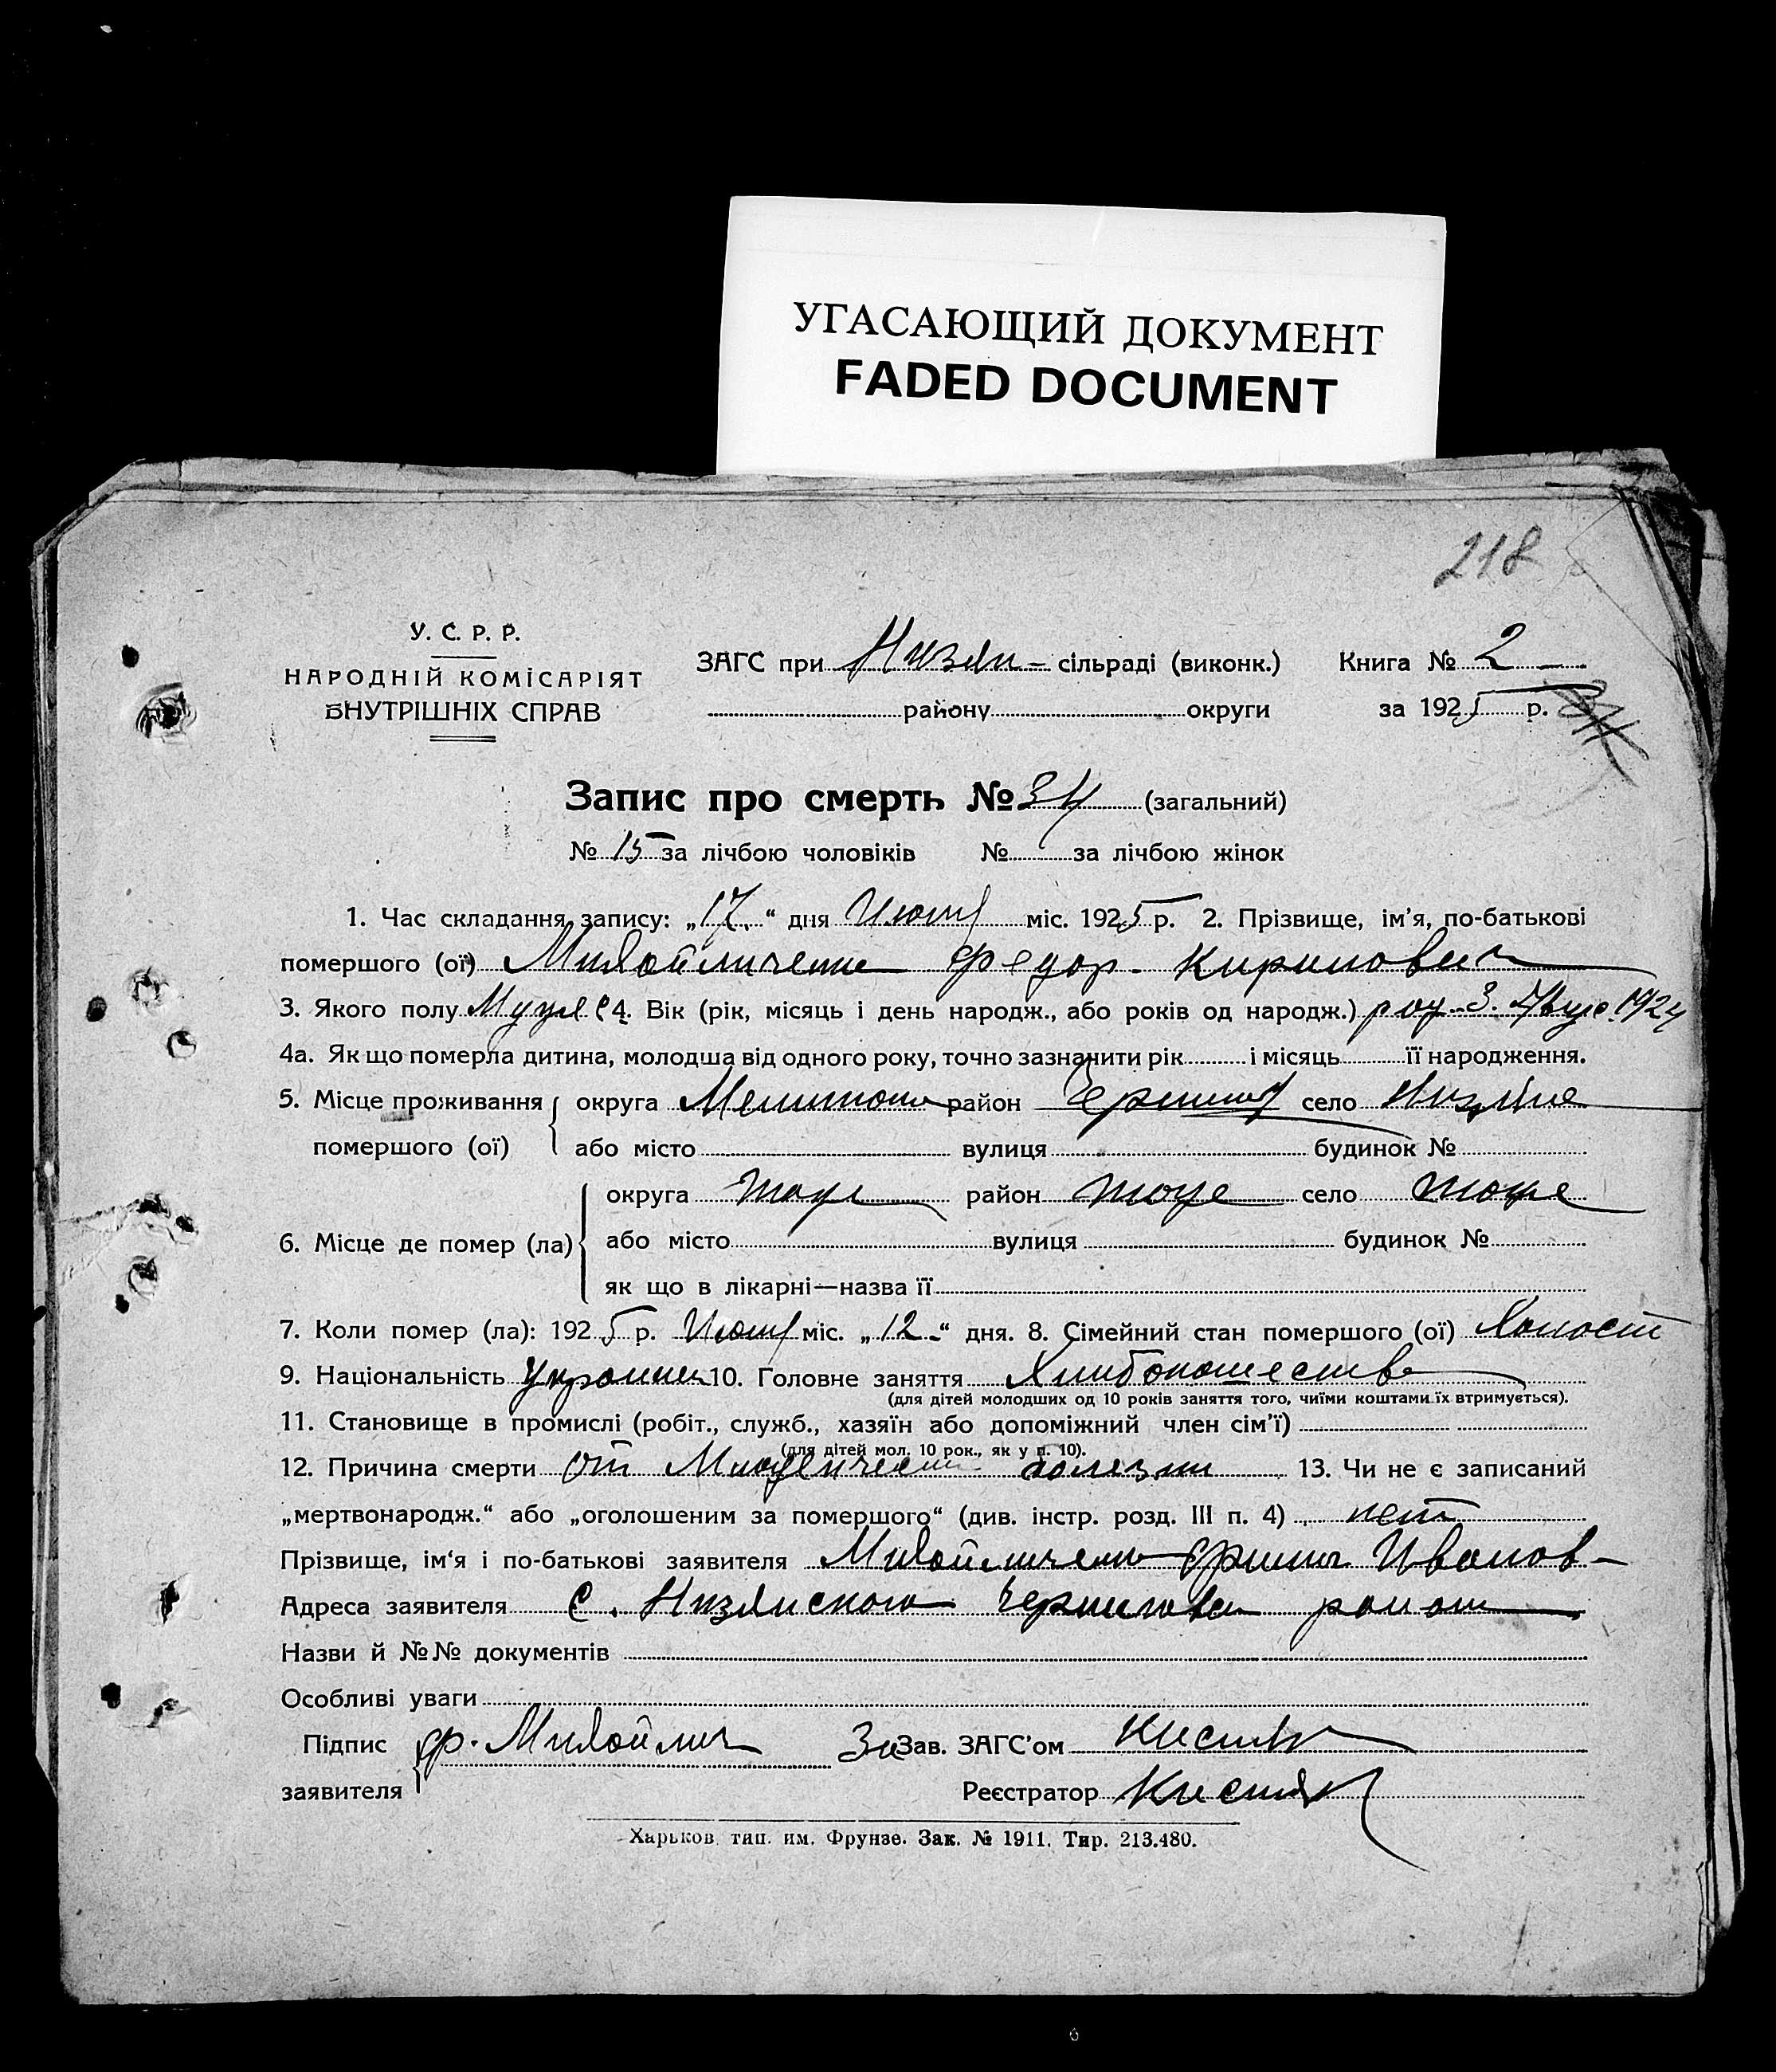 УГАСАЮЩИЙ ДОКУМЕНТ
FADED DOCUMENT
218
У. С. Р. Р.
НАРОДНІЙ КОМІСАРІЯТ
ВНУТРІШНІХ СПРАВ
ЗАГС при Низян- сільраді (виконк.) Книга № 2
району округи за 1925 р.
Запис про смерть № 34 (загальний)
№ 15 за лічбою чоловіків № за лічбою жінок
1. Час складання запису: „17“ дня Июня міс. 1925 р. 2. Прізвище, ім’я, по-батькові
помершого (ої) Михайличенко Федор Кирилович
3. Якого полу 4. Вік (рік, місяць і день народж., або років од народж.) род. 3. 1924
4а. Як що померла дитина, молодша від одного року, точно зазначити рік і місяць її народження.
5. Місце проживання округа Мелитоп район село
помершого (ої) або місто вулиця будинок №
округа тоже район тоже село тоже
6. Місце де помер (ла) або місто вулиця будинок №
як що в лікарні—назва її
7. Коли помер (ла): 1925 р. Июня міс. „12“ дня. 8. Сімейний стан помершого (ої) Холост
9. Національність Украин 10. Головне заняття
(для дітей молодших од 10 років заняття того, чиїми коштами їх втримується).
11. Становище в промислі (робіт., служб., хазяїн або допоміжний член сім’ї)
(для дітей мол. 10 рок., як у п. 10).
12. Причина смерти от болезни 13. Чи не є записаний
„мертвонародж.“ або „оголошеним за помершого“ (див. інстр. розд. III п. 4) нет
Прізвище, ім‘я і по-батькові заявителя Михайличенко Иванов-
Адреса заявителя с. Низянского район
Назви й №№ документів
Особливі уваги
Підпис Михайлич За Зав. ЗАГС’ом
заявителя Реєстратор
Харьков, тип. им. Фрунзе. Зак. № 1911. Тир. 213.480.